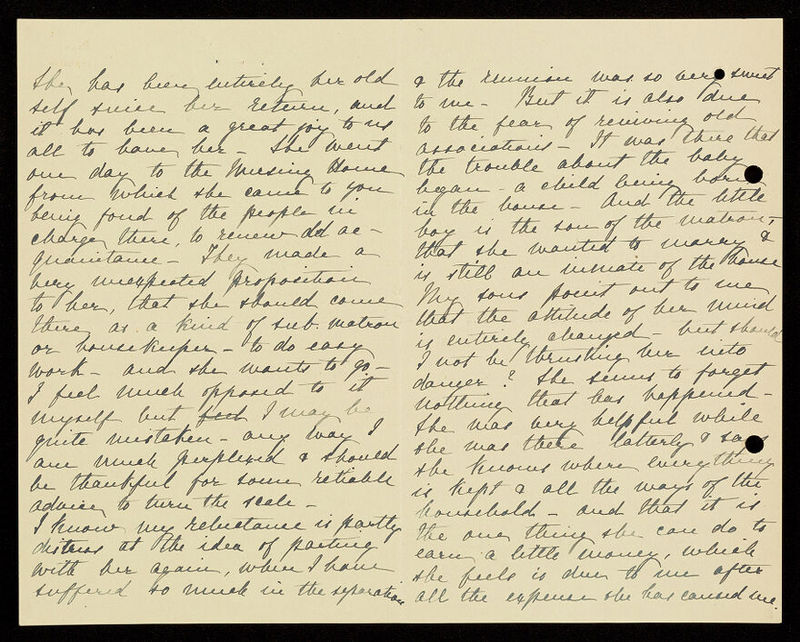 She has been entirely her old
self since her return, and
it has been a great joy to us
all to have her - She went
one day to the Nursing Home
from which she came to you
being fond of the people in
charge there, to renew old ac-
quaintance - They made a
very unexpected proposition
to her, that she should come
there as a kind of sub. matron
or housekeeper - to do easy
work - and she wants to go -
I feel much opposed to it
myself but feel I may be
quite mistaken - any way I
am much perplexed & should
be thankful for some reliable
advice to turn the scale -
I know my reluctance is partly
distress at the idea of parting
with her again, when I have
suffered so much in the separation
& the reunion was so very sweet
to me - But it is also due
to the fear of reviving old
associations - It was there that
the trouble about the baby
began - a child being born
in the house - And the little
boy is the son of the matron,
that she wanted to marry &
is still an inmate of the house
My sons point out to me
that the attitude of her mind
is entirely changed - but should
I not be thrusting her into
danger? She seems to forget
nothing that has happened -
She was very helpful while
she was there latterly & says
she knows where everything
is kept & all the ways of the
household - and that it is
the one thing she can do to
earn a little money, which
she feels is due to me after
all the expense she has caused me.